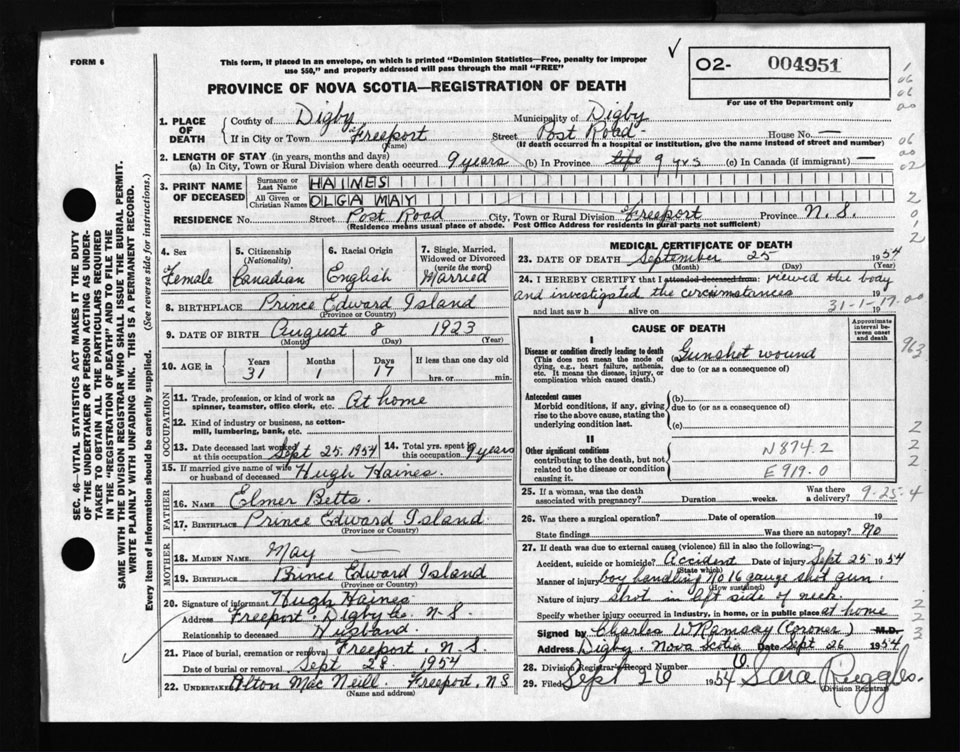 FORM 6
This form, if placed in an envelope, on which is printed "Dominion Statistics—Free, penalty for improper
use $50," and properly addressed will pass through the mail "FREE"
✓
O2- 004951
For use of the Department only
PROVINCE OF NOVA SCOTIA—REGISTRATION OF DEATH
1. PLACE OF DEATH { County of Digby Municipality of Digby
If in City or Town Freeport (Name) Street Post Road House No. —
(If death occurred in a hospital or institution, give the name instead of street and number)
2. LENGTH OF STAY (in years, months and days)
(a) In City, Town or Rural Division where death occurred 9 years (b) In Province life 9 yrs (c) In Canada (if immigrant) —
3. PRINT NAME OF DECEASED { Surname or Last Name HAINES
All Given or Christian Names OLGA MAY
RESIDENCE No. Street Post Road City, Town or Rural Division Freeport Province N. S.
(Residence means usual place of abode. Post Office Address for residents in rural parts not sufficient)
4. Sex Female
5. Citizenship (Nationality) Canadian
6. Racial Origin English
7. Single, Married, Widowed or Divorced (write the word) Married
8. BIRTHPLACE Prince Edward Island
(Province or Country)
9. DATE OF BIRTH August 8 1923
(Month) (Day) (Year)
10. AGE in { Years 31 Months 1 Days 17 If less than one day old
hrs. or min.
OCCUPATION
11. Trade, profession, or kind of work as
spinner, teamster, office clerk, etc. At home
12. Kind of industry or business, as cotton-
mill, lumbering, bank, etc.
13. Date deceased last worked at this occupation Sept 25. 1954 14. Total yrs. spent in this occupation 9 years
15. If married give name of wife or husband of deceased Hugh Haines.
FATHER
16. NAME Elmer Betts.
17. BIRTHPLACE Prince Edward Island.
(Province or Country)
MOTHER
18. MAIDEN NAME May —
19. BIRTHPLACE Prince Edward Island
(Province or Country)
20. Signature of informant Hugh Haines
Address Freeport. Digby Co N-S.
Relationship to deceased Husband.
21. Place of burial, cremation or removal Freeport, N.S.
Date of burial or removal Sept 28 1954
22. Undertaker Alton Mac Neill. Freeport, N.S.
(Name and address)
MEDICAL CERTIFICATE OF DEATH
23. DATE OF DEATH September 25 1954
(Month) (Day) (Year)
24. I HEREBY CERTIFY that I attended deceased from: viewed the body
and investigated the circumstances 19
and last saw h alive on 19
31-1-17.00
CAUSE OF DEATH
Approximate interval between onset and death
I
Disease or condition directly leading to death
(This does not mean the mode of
dying, e.g., heart failure, asthenia,
etc. It means the disease, injury, or
complication which caused death.)
(a) Gunshot wound
due to (or as a consequence of)
Antecedent causes
Morbid conditions, if any, giving
rise to the above cause, stating the
underlying condition last.
(b)
due to (or as a consequence of)
(c)
II
Other significant conditions
contributing to the death, but not
related to the disease or condition
causing it.
N874.2
E919.0
25. If a woman, was the death
associated with pregnancy? Duration weeks. Was there a delivery?
9-25-4
26. Was there a surgical operation? Date of operation 19
State findings Was there an autopsy? No
27. If death was due to external causes (violence) fill in also the following:
Accident, suicide or homicide? Accident Date of injury Sept 25 1954
(State which)
Manner of injury boy handling No 16 gauge shot gun.
(How sustained)
Nature of injury Shot in left side of neck.
Specify whether injury occurred in industry, in home, or in public place at home
Signed by Charles W Ramsay (Coroner) M.D.
Address Digby. Nova Scotia Date Sept 26 1954
28. Division Registrar's Record Number 6
29. Filed Sept 26 1954 Sara Ruggles.
(Division Registrar)
SEC. 46—VITAL STATISTICS ACT MAKES IT THE DUTY
OF THE UNDERTAKER OR PERSON ACTING AS UNDER-
TAKER TO OBTAIN ALL THE PARTICULARS REQUIRED
IN THE "REGISTRATION OF DEATH" AND TO FILE THE
SAME WITH THE DIVISION REGISTRAR WHO SHALL ISSUE THE BURIAL PERMIT.
WRITE PLAINLY WITH UNFADING INK. THIS IS A PERMANENT RECORD.
Every item of information should be carefully supplied. (See reverse side for instructions.)
1
06
06
00
06
00
02
2
0
1
2
963
2
2
2
2
2
3